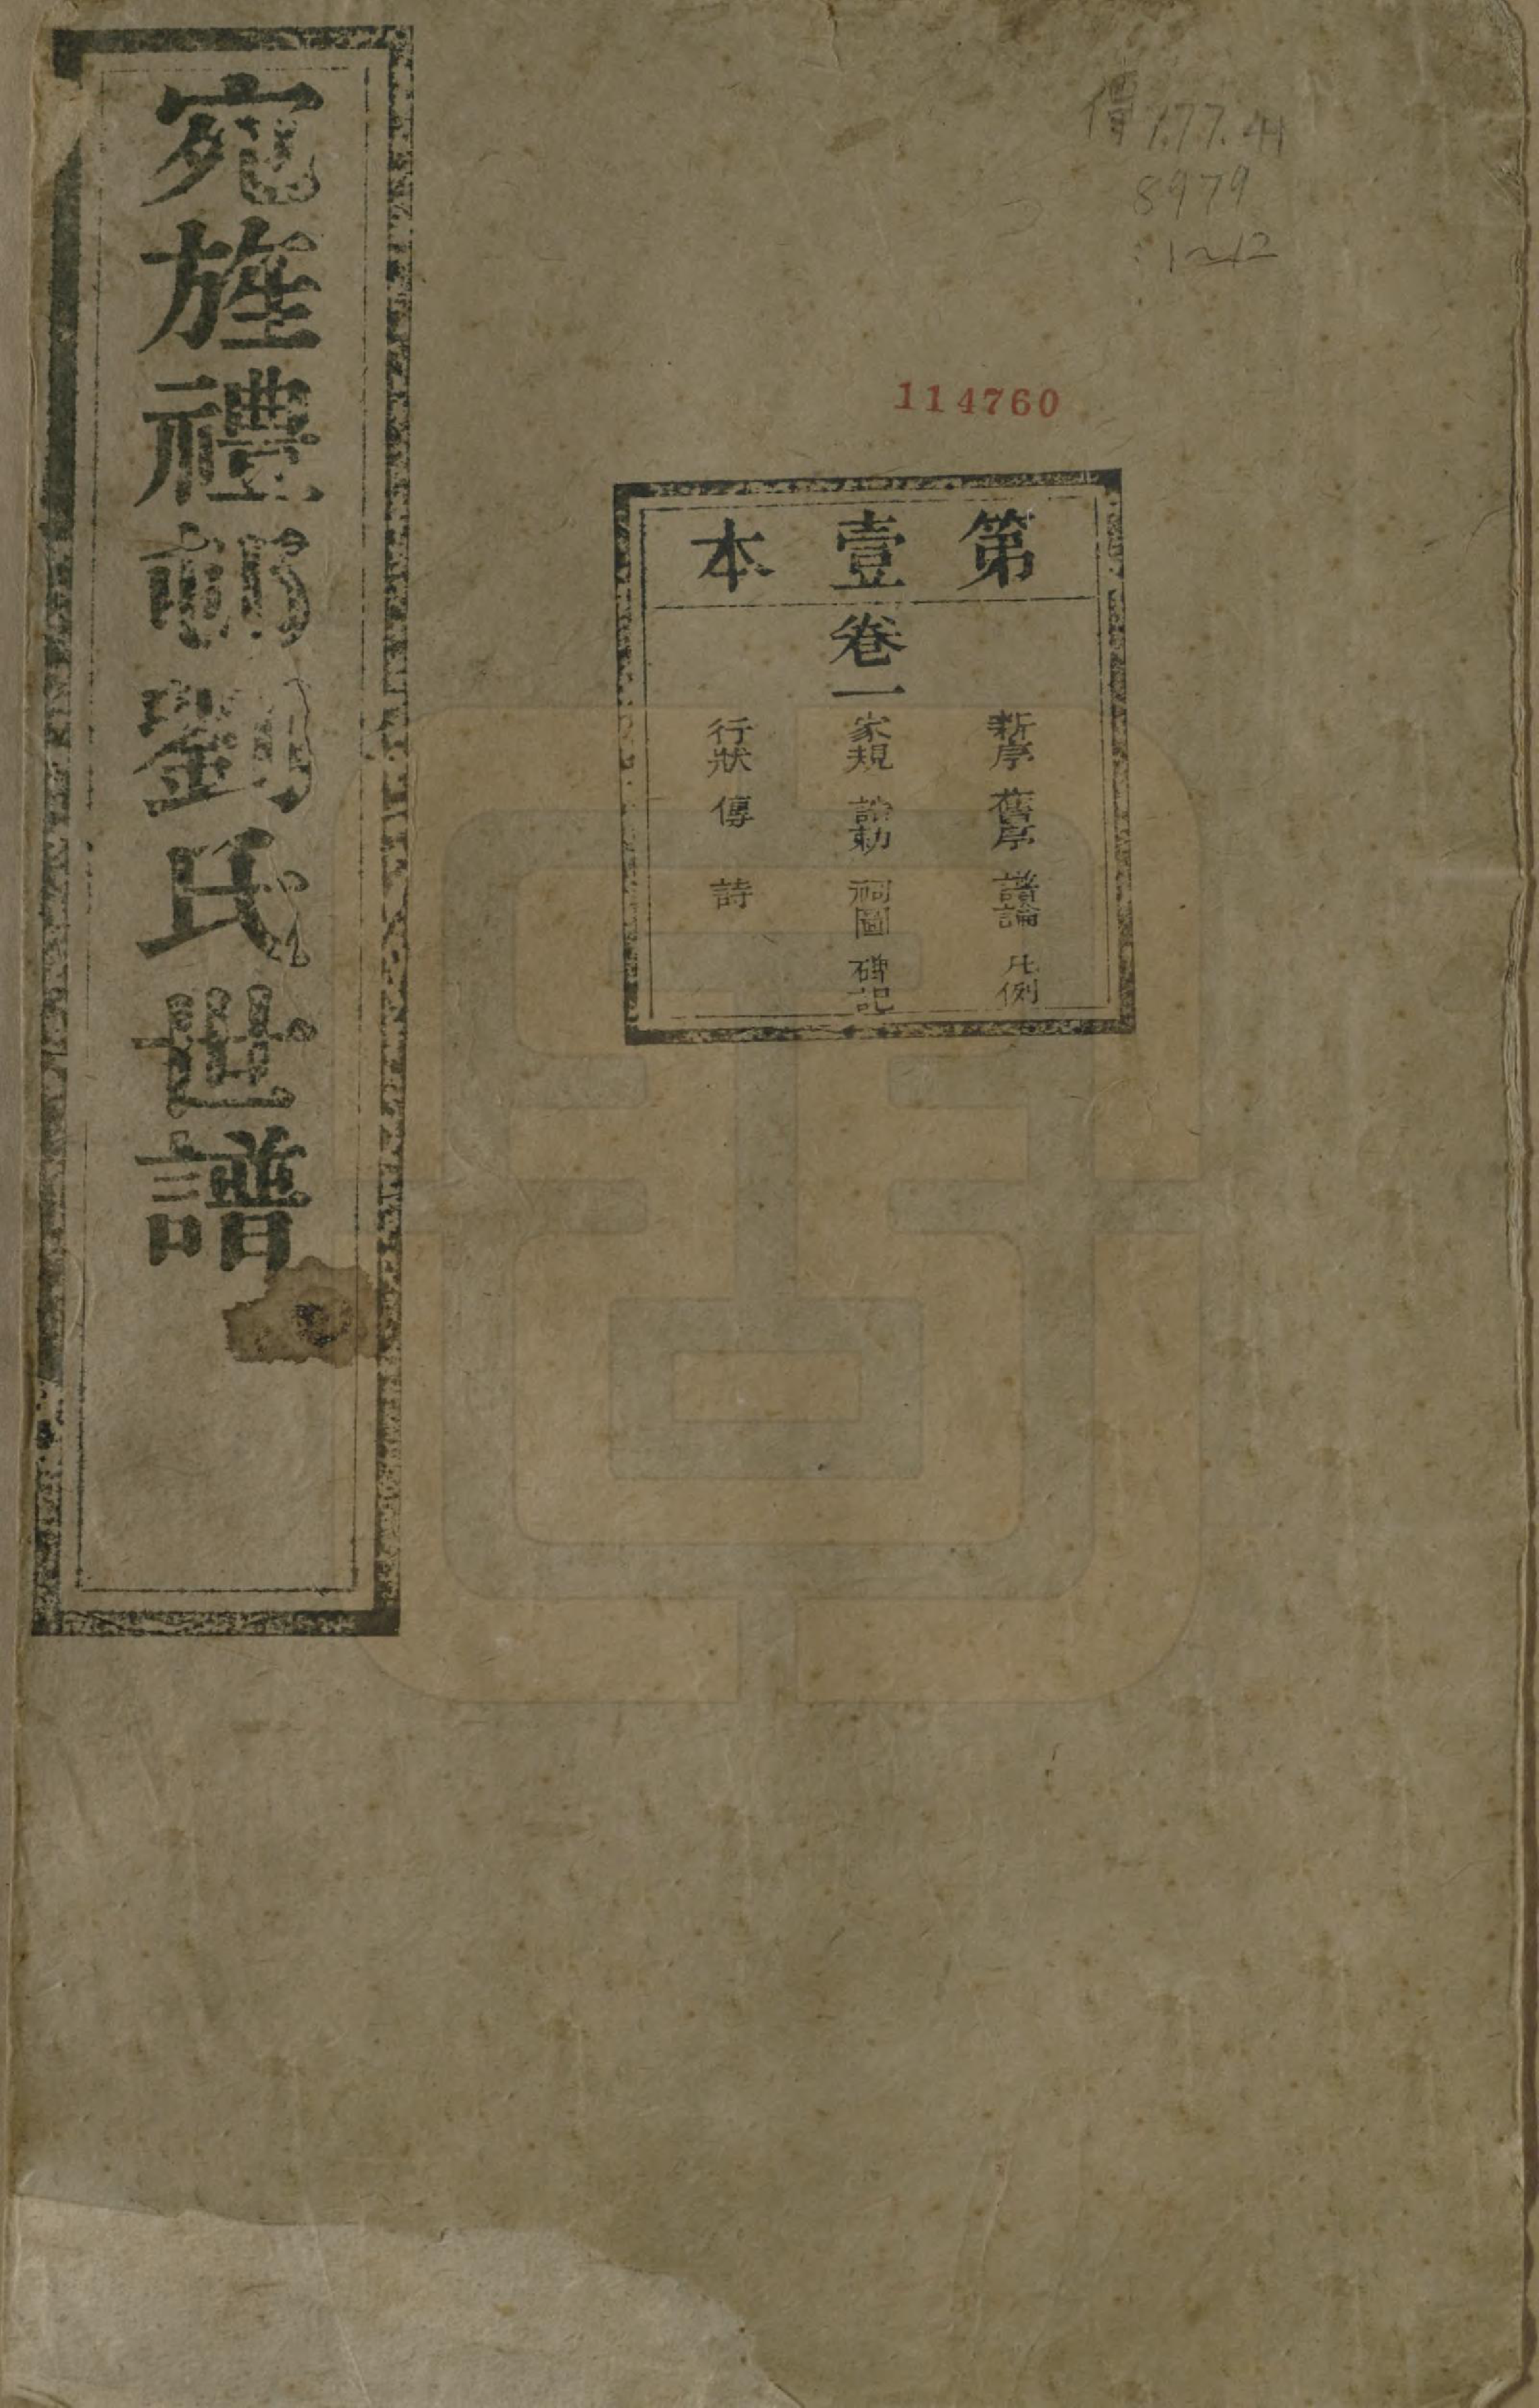 宛旌禮邨劉氏世譜
傳 777.41
8979
:1~12
114760
第壹本
卷一
新序 舊序 譜論 凡例
家規 誥勅 祠圖 碑記
行狀 傳 詩